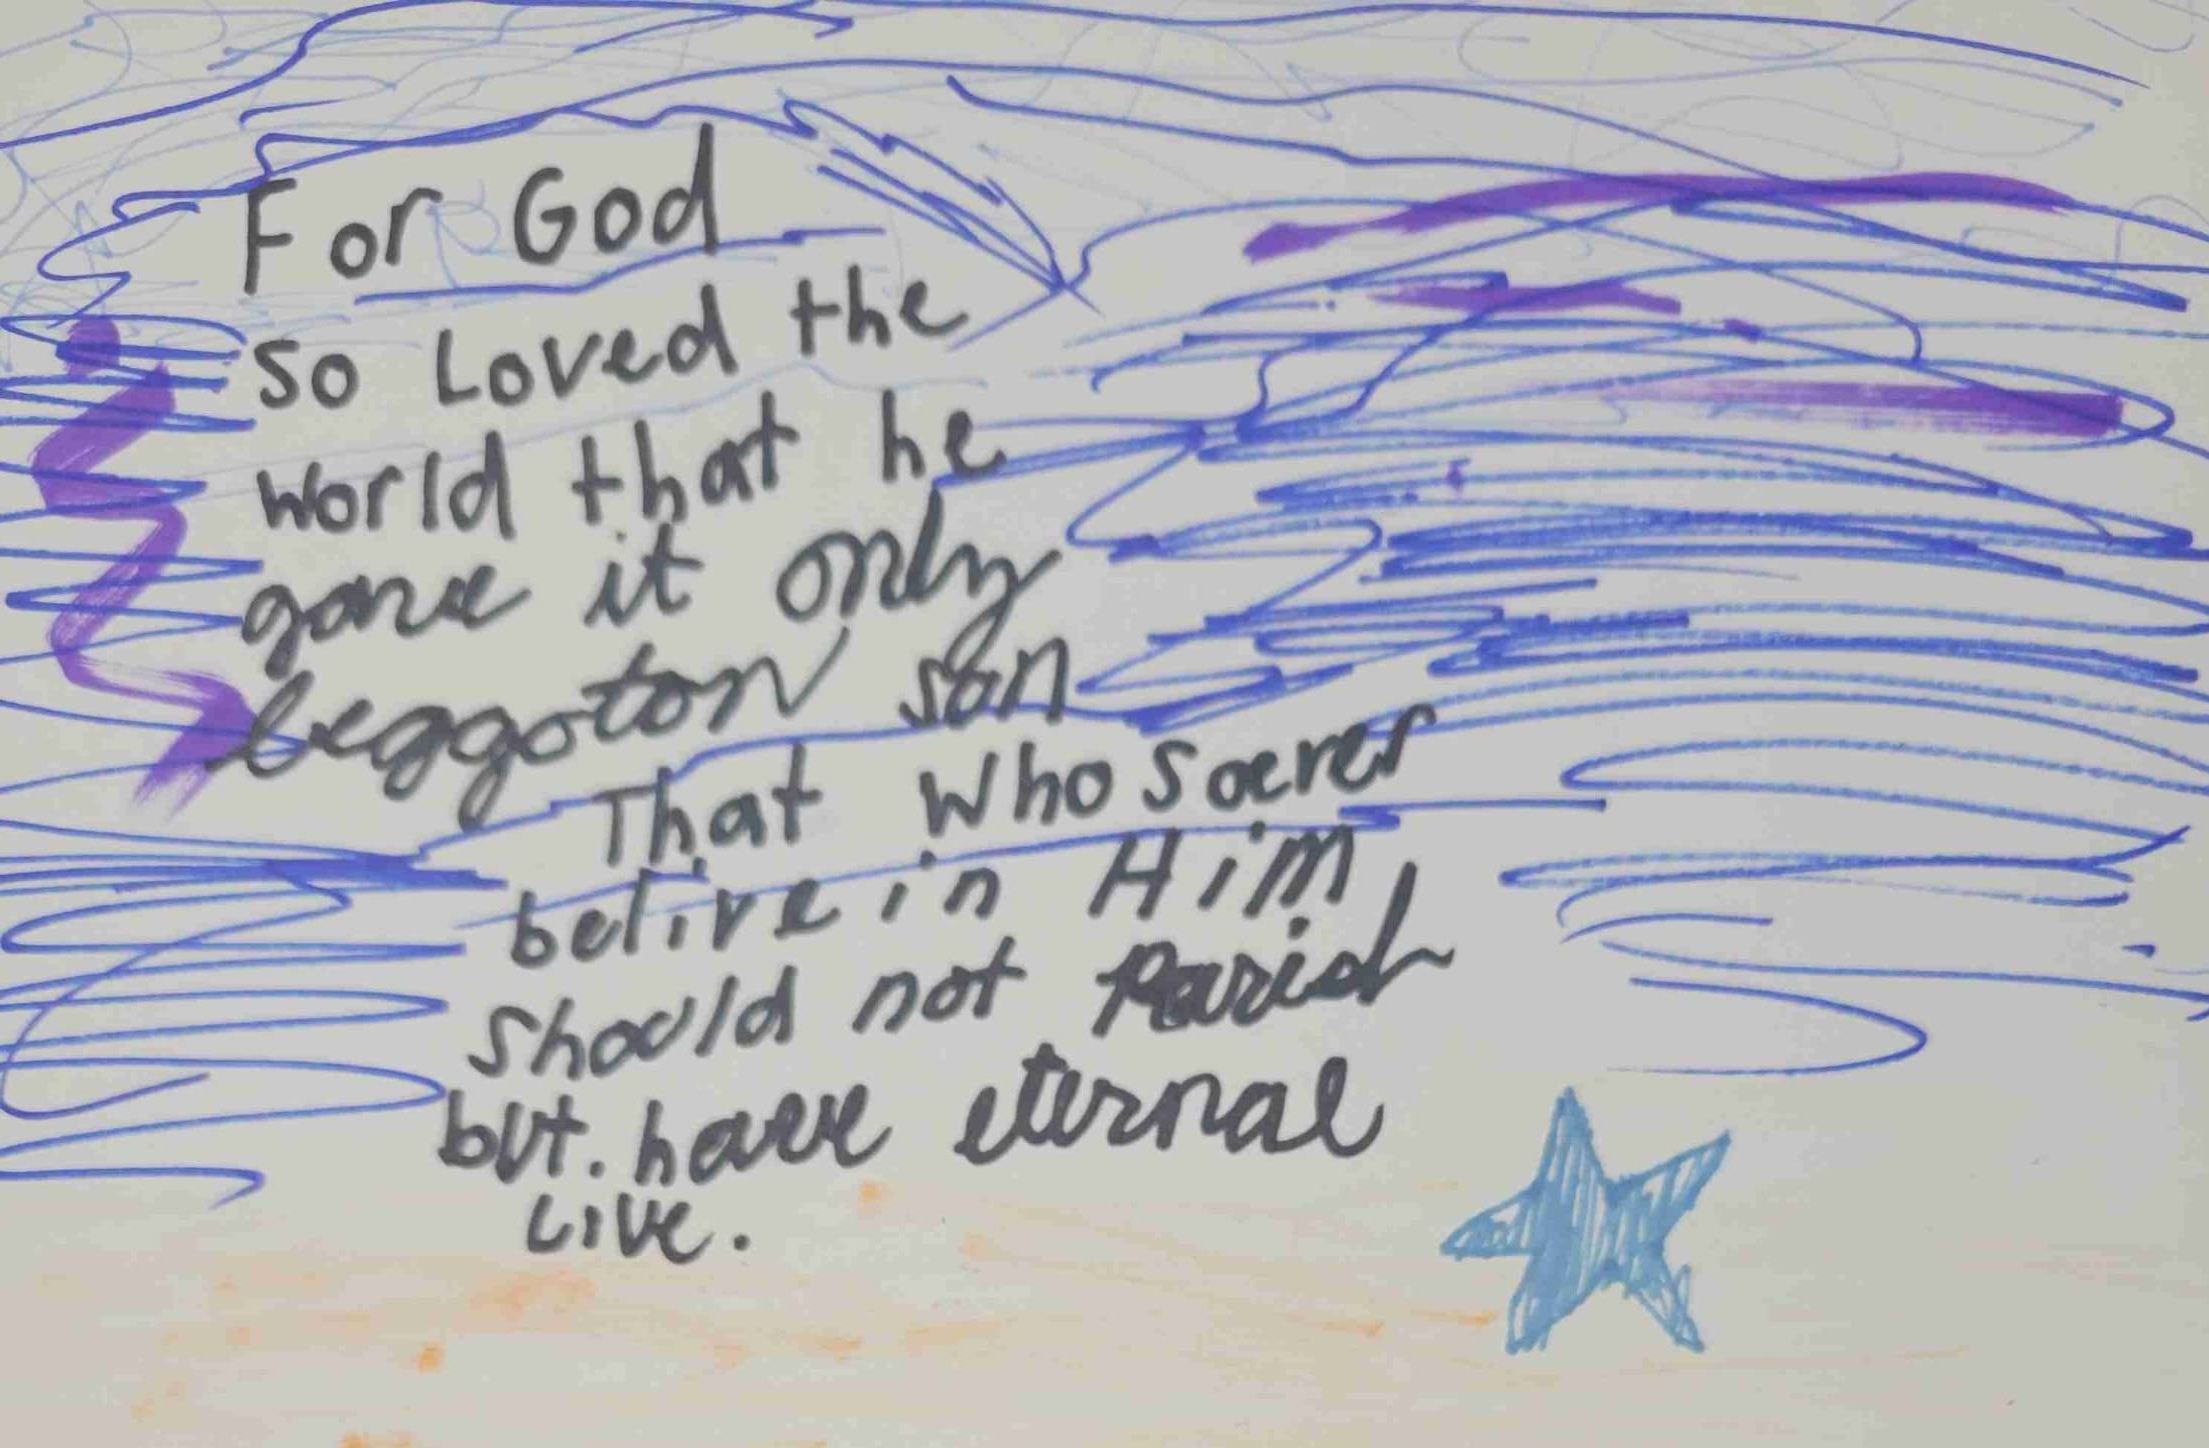 For God
so Loved the
world that he
gave it only
beggoton son
That Who soever
belive in Him
should not Parish
but. have eternal
Live.